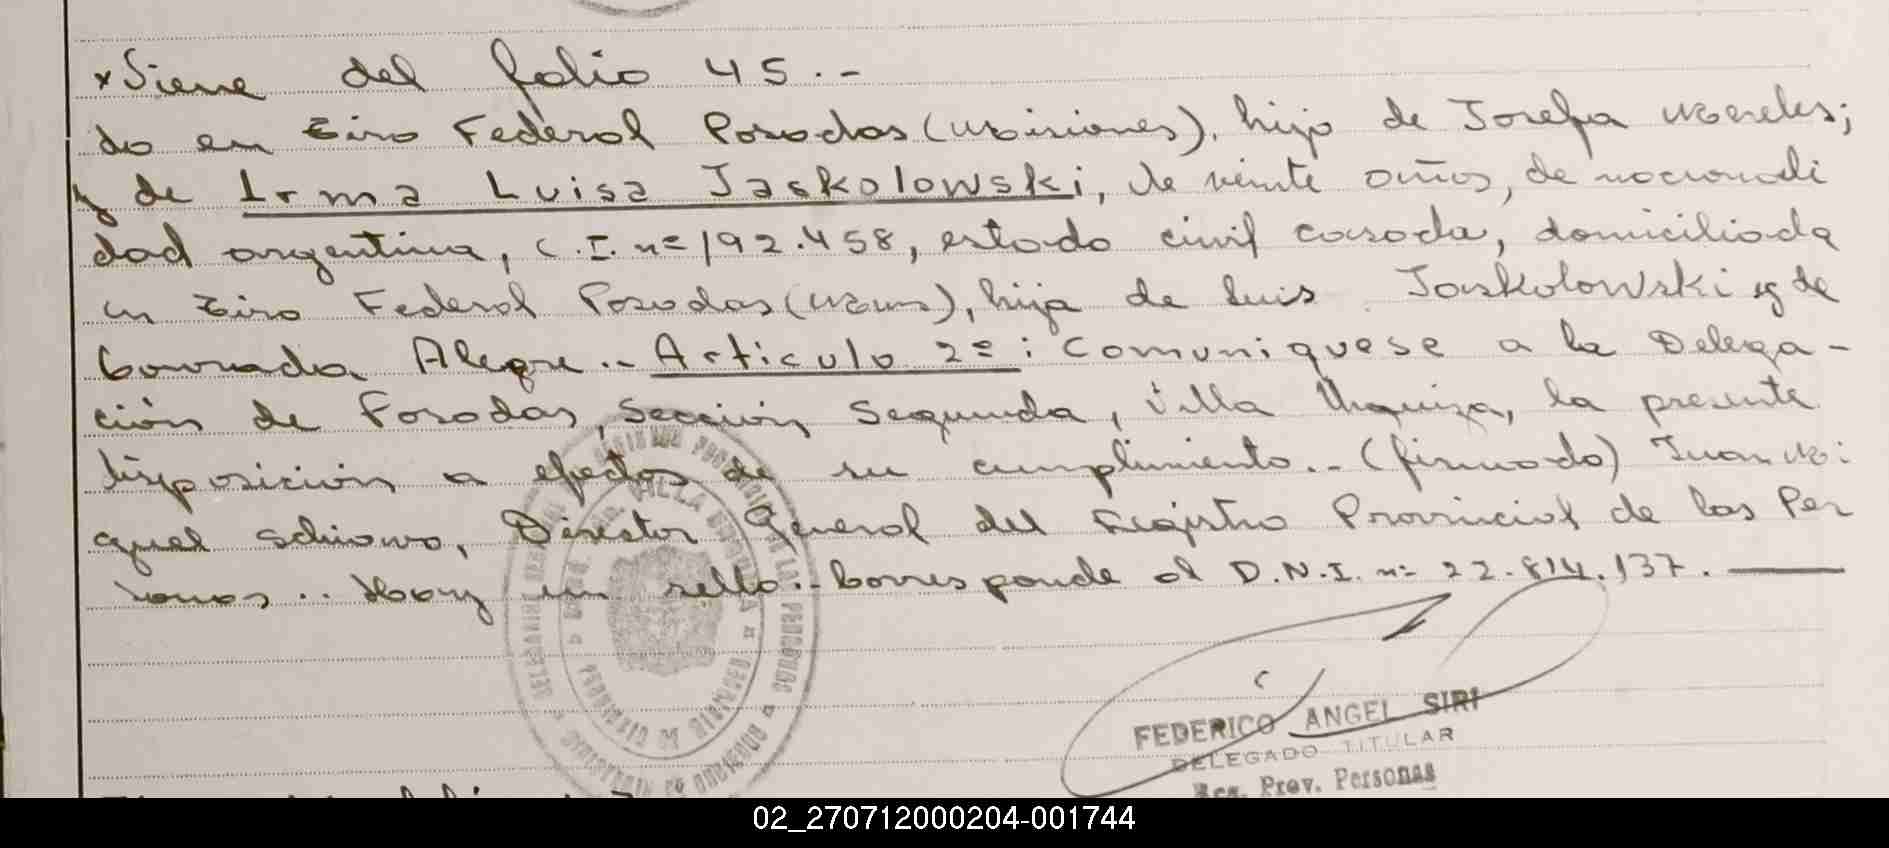 x Viene del folio 45.-
do en Tiro Federal Posadas (Misiones), hijo de Josefa Mereles;
y de Irma Luisa Jaskolowski, de veinte años, de nacionali
dad argentina, C.I. nº 192.458, estado civil casada, domiciliada
en Tiro Federal Posadas (Mnes), hija de Luis Jaskolowski y de
Conrada Alegre.- Artículo 2º: Comuniquese a la Delega-
ción de Posadas, Sección Segunda, Villa Urquiza, la presente
disposición a efectos de su cumplimiento.- (firmado) Juan Mi
guel Schiavo, Director General del Registro Provincial de las Per
sonas.. Hay un sello.- Corresponde al D.N.I. nº 22.814.137.
FEDERICO ANGEL SIRI
DELEGADO TITULAR
Reg. Prov. Personas
02_270712000204-001744